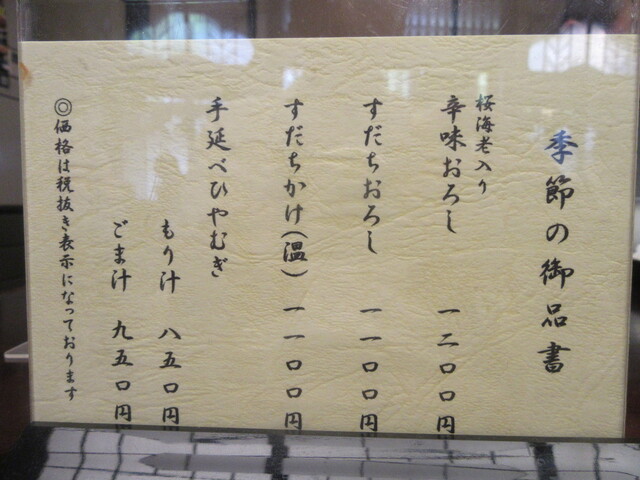 季節の御品書
桜海老入り
辛味おろし 一二〇〇円
すだちおろし 一一〇〇円
すだちかけ(温) 一一〇〇円
手延べひやむぎ
もり汁 八五〇円
ごま汁 九五〇円
◎価格は税抜き表示になっております